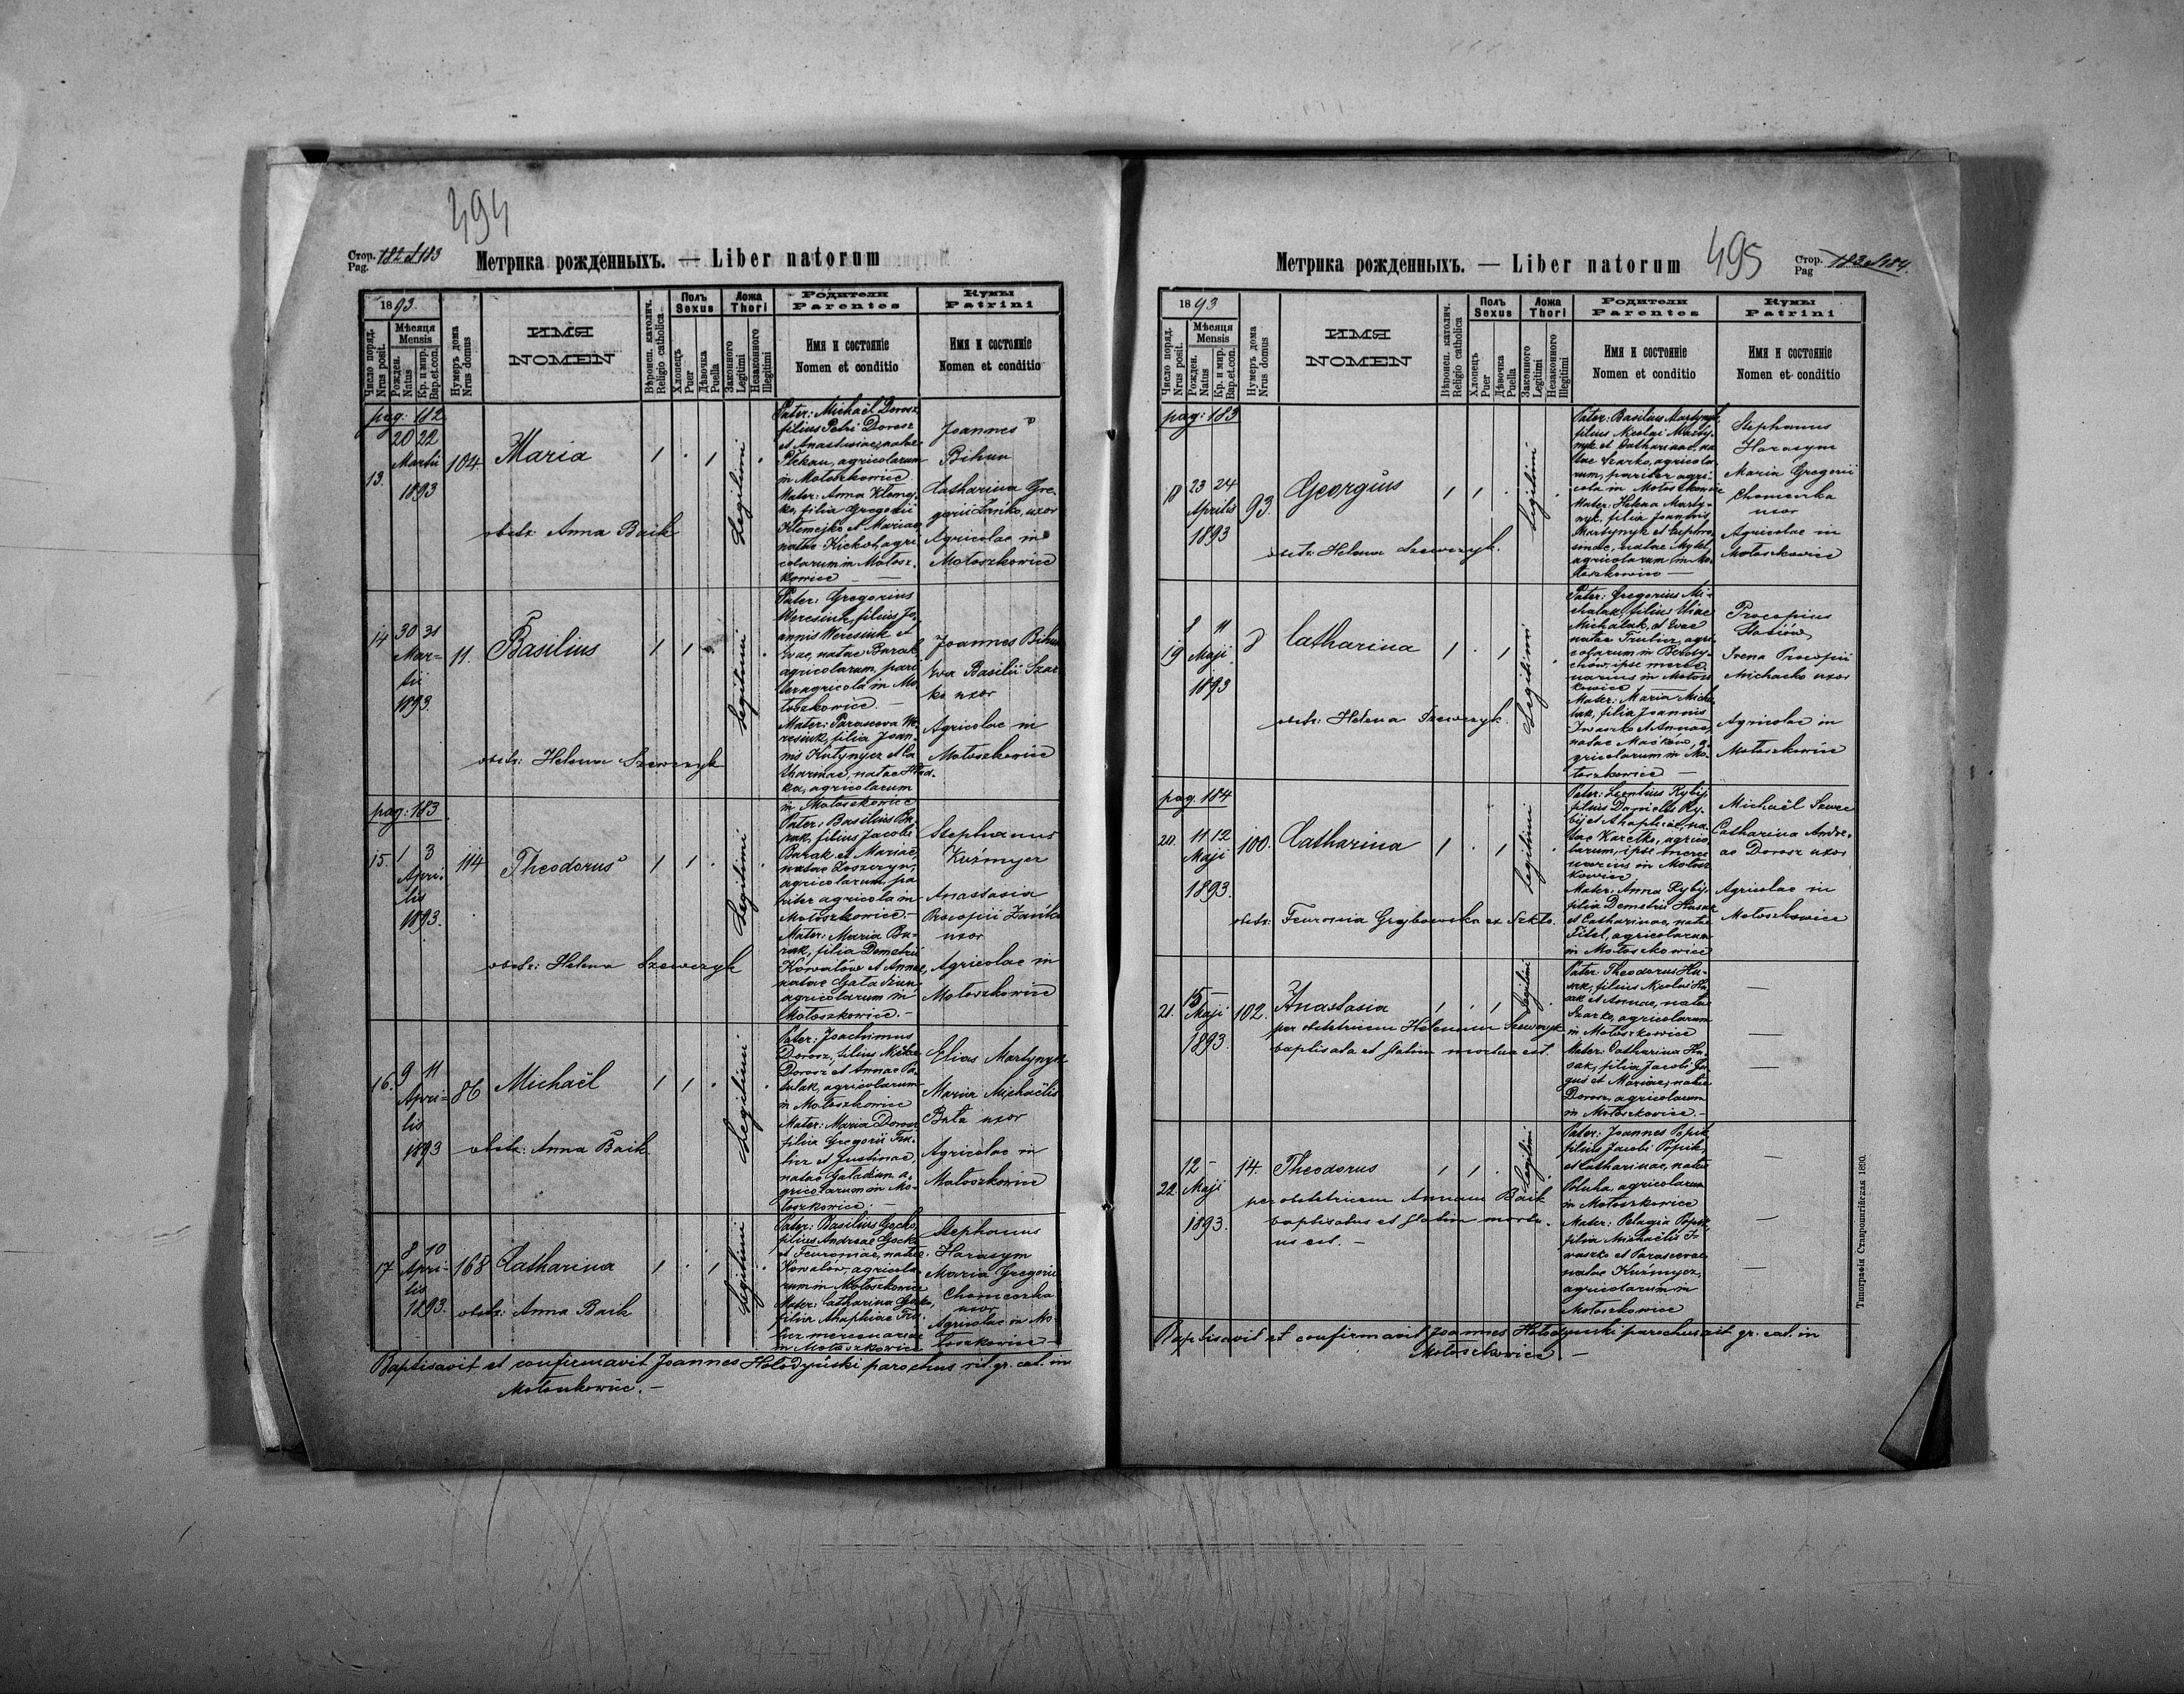 494
Стор. 182 et 183
Pag.
Метрика рожденныхъ. — Liber natorum
1893.
Число поряд.
Nrus posit.
Мѣсяця
Mensis
Рожден.
Natus
Кр. и мир.
Bap.et.con.
Нумеръ дома
Nrus domus
ИМЯ
NOMEN
Вѣроисп. католич.
Religio catholica
Полъ
Sexus
Хлопецъ
Puer
Дѣвочка
Puella
Ложа
Thori
Законного
Legitimi
Незаконного
Illegitimi
Родители
Parentes
Имя и состоянiе
Nomen et conditio
Кумы
Patrini
Имя и состоянiе
Nomen et conditio
pag: 182
13.
20 22
Martii
1893
104
Maria
obstr. Anna Baik
1 . 1 .
Legitimi
Pater: Michaël Dorosz
filius Petri Dorosz
et Anastasiae, natae
agricolarum
in Mołoszkowice.
Mater: Anna Klemej-
ko, filia Gregorii
Klemejko et Mariae,
natae Kickot, agri-
colarum in Mołosz-
kowice —
Joannes
Bihun
Catharina Gre-
gorii Zanko, uxor
Agricolae in
Mołoszkowice
14
30 31
Mar-
tii
1893.
11.
Basilius
obstr: Helena Szewczyk
1 1 .
Legitimi
Pater: Gregorius
Weresiuk, filius Jo-
annis Weresiuk et
Evae, natae Burak
agricolarum, pari-
ter agricola in Mo-
łoszkowice. —
Mater: Parasceva We-
resiuk, filia Joan-
nis Kutynycz et Ca-
tharinae, natae
agricolarum
in Mołoszkowice
Joannes Bihun
Eva Basilii Szar-
ko uxor
Agricolae in
Mołoszkowice
pag: 183
15.
1 3
Apri-
lis
1893.
114
Theodorus
obstr: Helena Szewczyk
1 1 .
Legitimi
Pater: Basilius Bu-
rak, filius Jacobi
Burak et Mariae,
natae
agricolarum, pa-
riter agricola in
Mołoszkowice. —
Mater: Maria Bu-
rak, filia Demetrii
Kowalów et Annae,
natae Gaładiun,
agricolarum in
Mołoszkowice. —
Stephanus
Kuźmycz
Anastasia
Procopii Zanko
uxor
Agricolae in
Mołoszkowice
16.
9 11
Apri-
lis
1893
86
Michaël
obstr: Anna Baik
1 1 .
Legitimi
Pater: Joachimus
Dorosz, filius
Dorosz et Annae
agricolarum
in Mołoszkowice
Mater: Maria Dorosz
filia Gregorii Tru-
licz et Justinae,
natae Gaładiun a-
gricolarum in Mo-
łoszkowice. —
Elias Martynyk
Maria Michaëlis
Bała uxor
Agricolae in
Mołoszkowice
17
8 10
Apri-
lis
1893.
168
Catharina
obstr: Anna Baik
1 . 1 .
Legitimi
Pater: Basilius Gocko,
filius Andreae Gocko
et Feuroniae, natae
Kowalów, agricola-
rum in Mołoszkowice
Mater: Catharina Gocko,
filia Ahaphiae
mercenariae
in Mołoszkowice
Stephanus
Harasym
Maria Gregorii
uxor
Agricolae in Mo-
łoszkowice —
Baptisavit et confirmavit Joannes Hołodyński parochus rit. gr. cat. in
Mołoszkowice. —
495
Стор. 183 et 184.
Pag
Метрика рожденныхъ. — Liber natorum
1893
Число поряд.
Nrus posit.
Мѣсяця
Mensis
Рожден.
Natus
Кр. и мир.
Bap.et.con.
Нумеръ дома
Nrus domus
ИМЯ
NOMEN
Вѣроисп. католич.
Religio catholica
Полъ
Sexus
Хлопецъ
Puer
Дѣвочка
Puella
Ложа
Thori
Законного
Legitimi
Незаконного
Illegitimi
Родители
Parentes
Имя и состоянiе
Nomen et conditio
Кумы
Patrini
Имя и состоянiе
Nomen et conditio
pag: 183
18
23 24
Aprilis
1893
93.
Georgius
obstr: Helena Szewczyk.
1 1 .
Legitimi
Pater: Basilius Martynyk,
filius Nicolai Marty-
nyk et Catharinae, na-
tae Szarko, agricola-
rum, pariter agri-
cola in Mołoszkowice
Mater: Helena Marty-
nyk, filia Joannis
Martynyk et Euphro-
sinae, natae
agricolarum in Mo-
łoszkowice —
Stephanus
Harasym
Maria Gregorii
uxor
Agricolae in
Mołoszkowice
19
8 11
Maji
1893
8
Catharina
obstr: Helena Szewczyk.
1 . 1 .
Legitimi
Pater: Gregorius Mi-
chalak, filius Eliae
Michalak, et Evae
natae Trulicz, agri-
colarum in
ipse merce-
narius in Mołosz-
kowice
Mater: Maria Micha-
lak, filia Joannis
Iwaszko et Annae,
natae Maćków, a-
gricolarum in Mo-
łoszkowice —
Procopius
Irena Procopii
Michasko uxor
Agricolae in
Mołoszkowice
pag. 184
20.
11 12
Maji
1893.
100.
Catharina
obstr. Feuronia Grybowska ex Szkło.
1 . 1 .
Legitimi
Pater: Leontius Rybij,
filius Danielis Ry-
bij et Ahaphiae, na-
tae agrico-
larum, ipse merce-
narius in Mołosz-
kowice
Mater: Anna Rybij,
filia Demetrii Husak
et Catharinae, natae
Fitel, agricolarum
in Mołoszkowice
Michaël Szwec
Catharina Andre-
ae Dorosz uxor
Agricolae in
Mołoszkowice
21.
15 —
Maji
1893.
102.
Anastasia
per obstetricem Helenam Szewczyk
baptisata et statim mortua est.
1 . 1 .
Legitimi
Pater: Theodorus Hu-
sak, filius Nicolai Hu-
sak et Annae, natae
Szarko, agricolarum
in Mołoszkowice
Mater: Catharina Hu-
sak, filia Jacobi
et Mariae, natae
Dorosz, agricolarum
in Mołoszkowice. —
—
—
—
22.
12 —
Maji
1893.
14.
Theodorus
per obstetricem Annam Baik
baptisatus et statim mortu-
us est. —
1 1 .
Legitimi
Pater: Joannes Popik,
filius Jacobi Popik,
et Catharinae, natae
Poluha, agricolarum
in Mołoszkowice
Mater: Pelagia Popik,
filia Michaëlis I-
waszko et Parascevae
natae Kuźmycz,
agricolarum in
Mołoszkowice
—
—
—
Baptisavit et confirmavit Joannes Hołodyński parochus rit. gr. cat. in
Mołoszkowice —
Типографія Ставропигійская 1890.